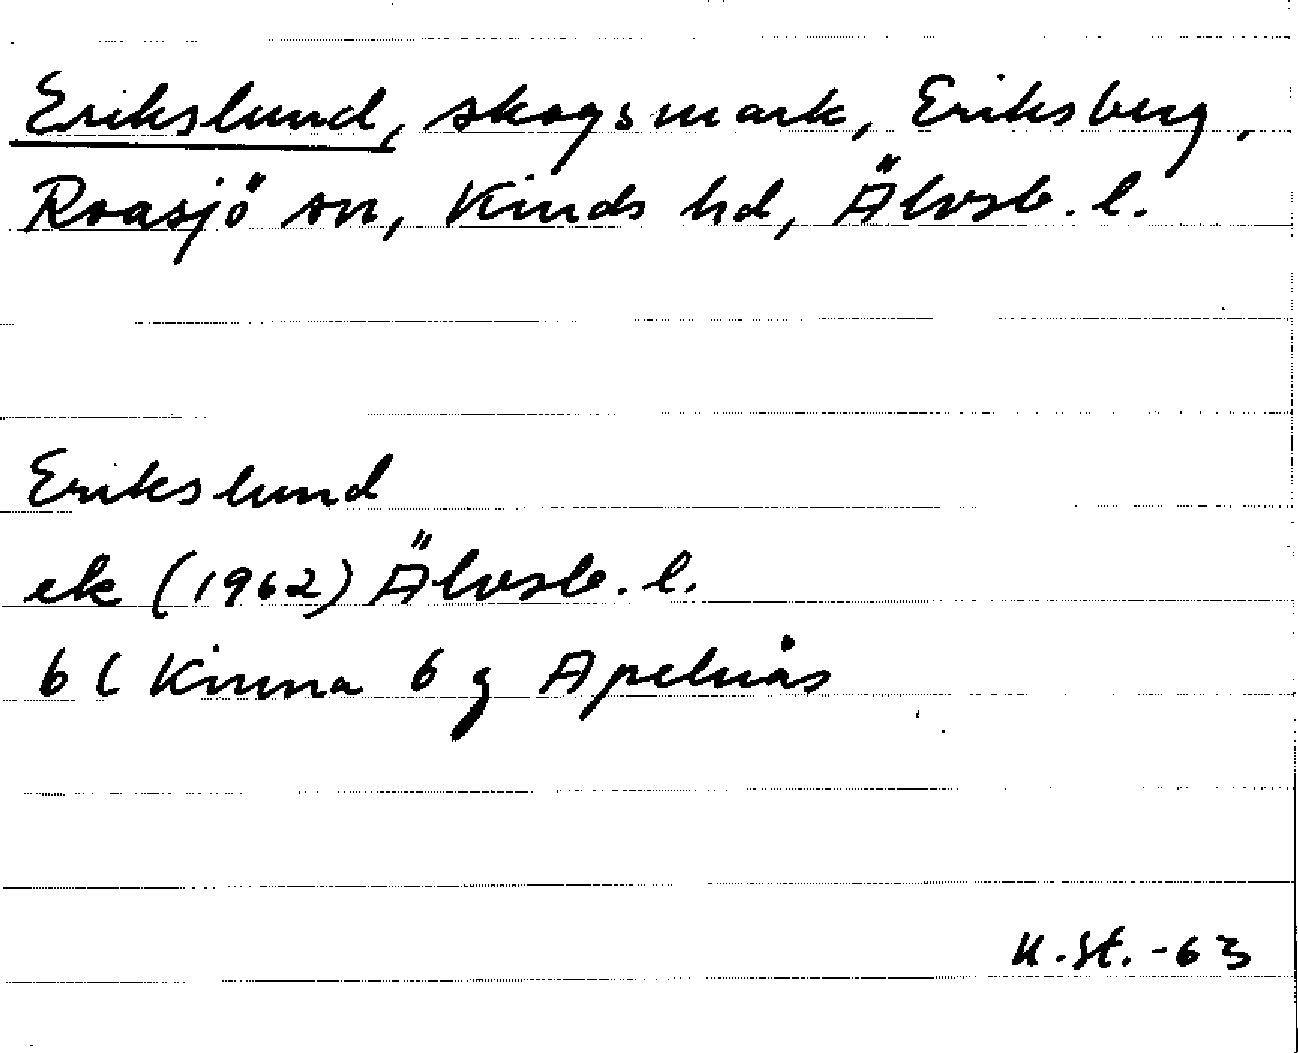 Erikslund, skogsmark, Eriksberg,
Roasjö sn, Kinds hd, Älvsb. l.
Erikslund
ek (1962) Älvsb. l.
6 C Kinna 6 g Apelnås
K.St. -63